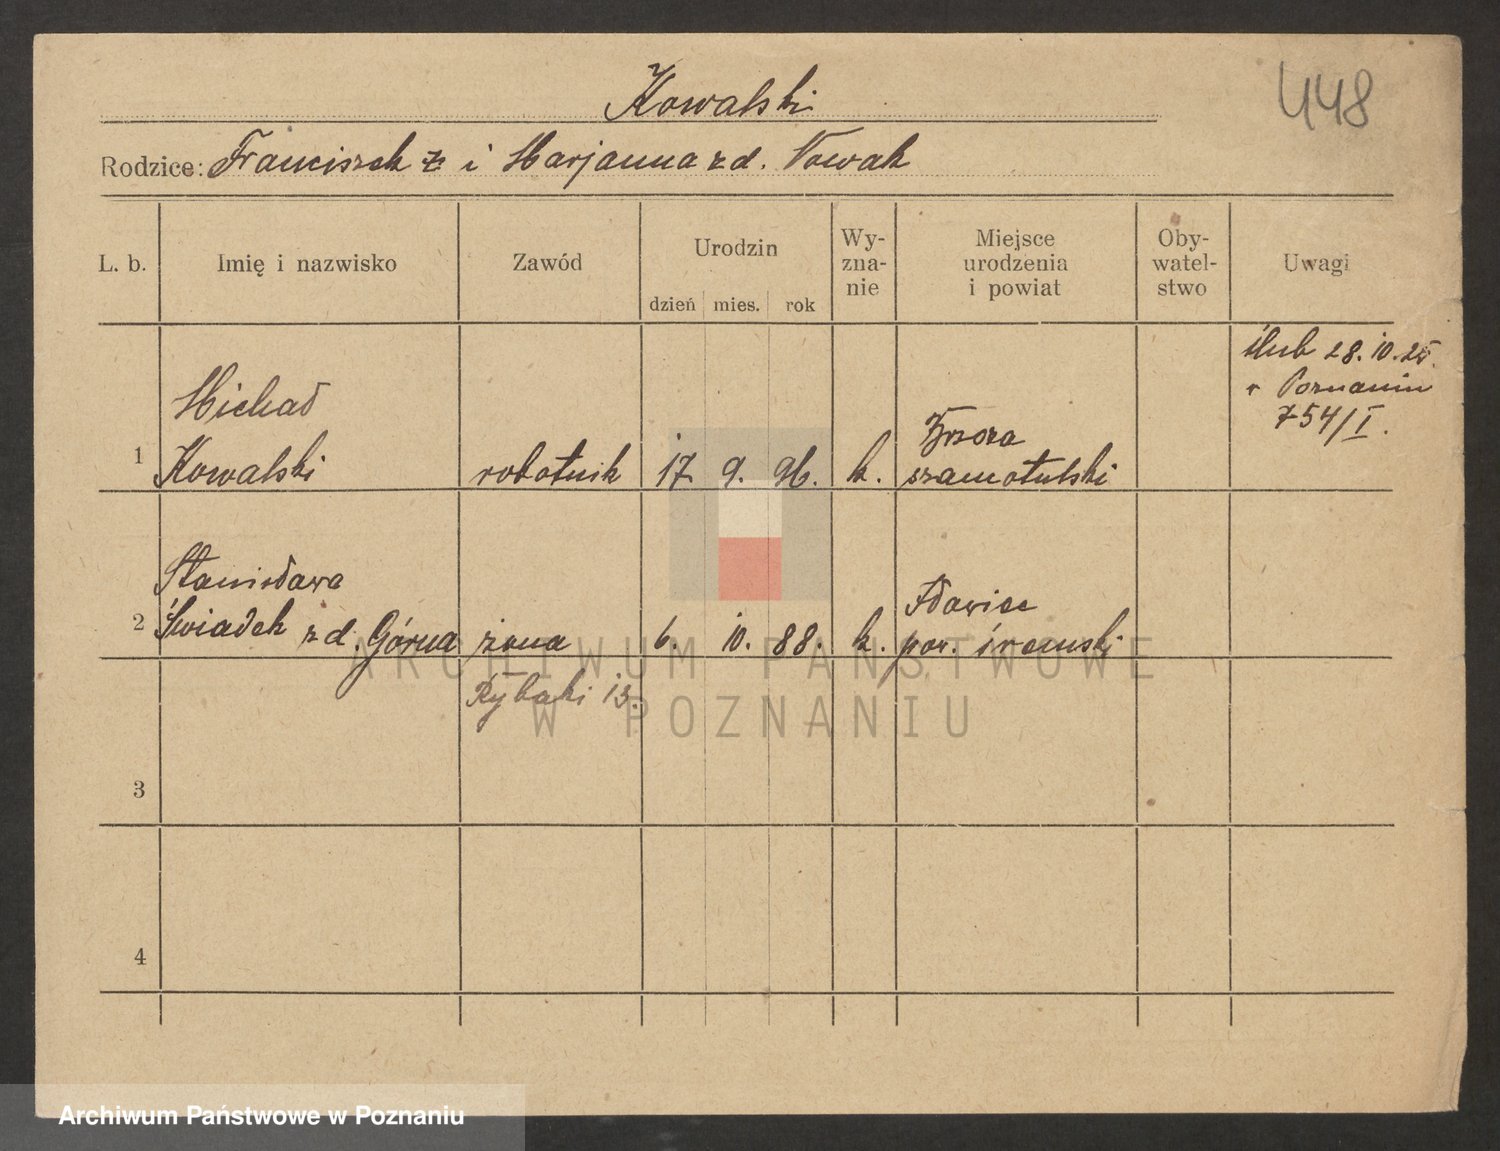 Kowalski
448
Rodzice: Franciszek i Marjanna zd. Nowak
L. b.
Imię i nazwisko
Zawód
Urodzin
dzień mies. rok
Wy-
zna-
nie
Miejsce
urodzenia
i powiat
Oby-
watel-
stwo
Uwagi
ślub 28. 10. 25.
w Poznaniu
754/I.
1
Michał
Kowalski
robotnik
17. 9. 96.
k.
szamotulski
2
Stanisława
Świadek zd. Górna
żona
6. 10. 88.
k.
pow. śremski
Rybaki 13.
3
4
ARCHIWUM PAŃSTWOWE
W POZNANIU
Archiwum Państwowe w Poznaniu